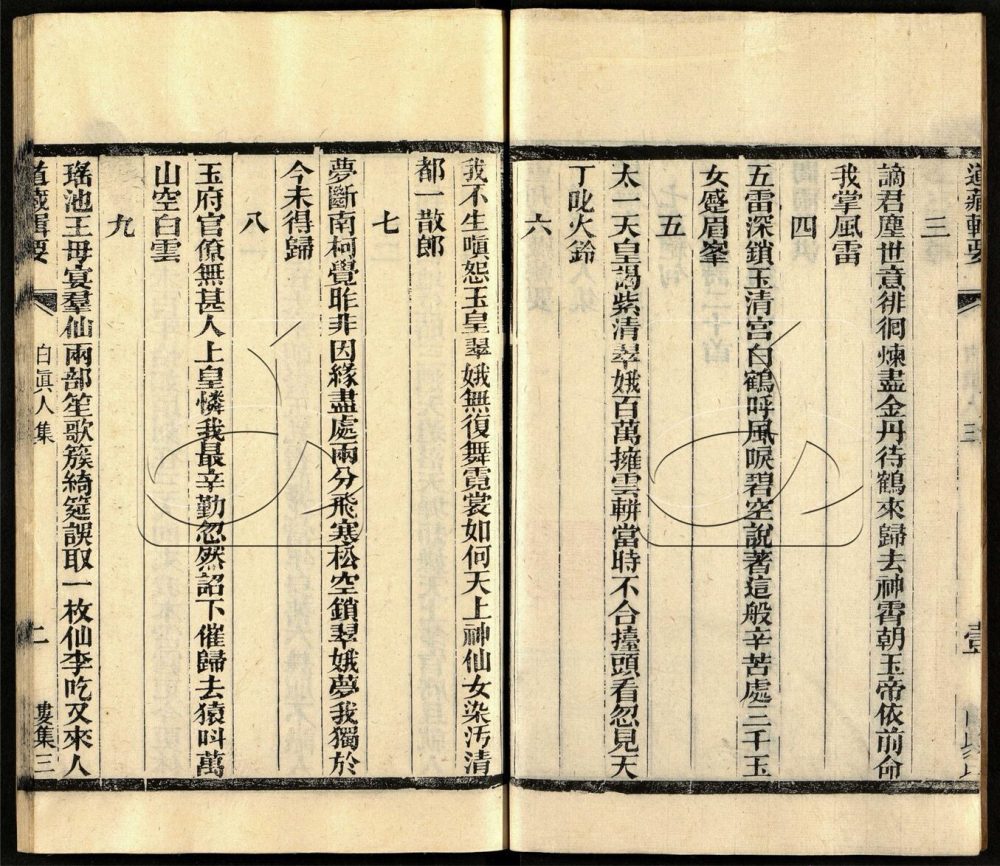 道藏輯要
三
謫君塵世意徘徊煉盡金丹待鶴來歸去神霄朝玉帝依前命
我掌風雷
四
五雷深鎖玉清宮白鶴呼風唳碧空說著這般辛苦處三千玉
女慼眉峯
五
太一天皇謁紫清翠娥百萬擁雲軿當時不合擡頭看忽見天
丁叱火鈴
六
我不生嗔怨玉皇翠娥無復舞霓裳如何天上神仙女染汚清
都一散郎
七
夢斷南柯覺昨非因緣盡處兩分飛寒松空鎖翠娥夢我獨於
今未得歸
八
玉府官僚無甚人上皇憐我最辛勤忽然詔下催歸去猿叫萬
山空白雲
九
瑤池王母宴羣仙兩部笙歌簇綺筵誤取一枚仙李吃又來人
道藏輯要 白眞人集 二 婁集三